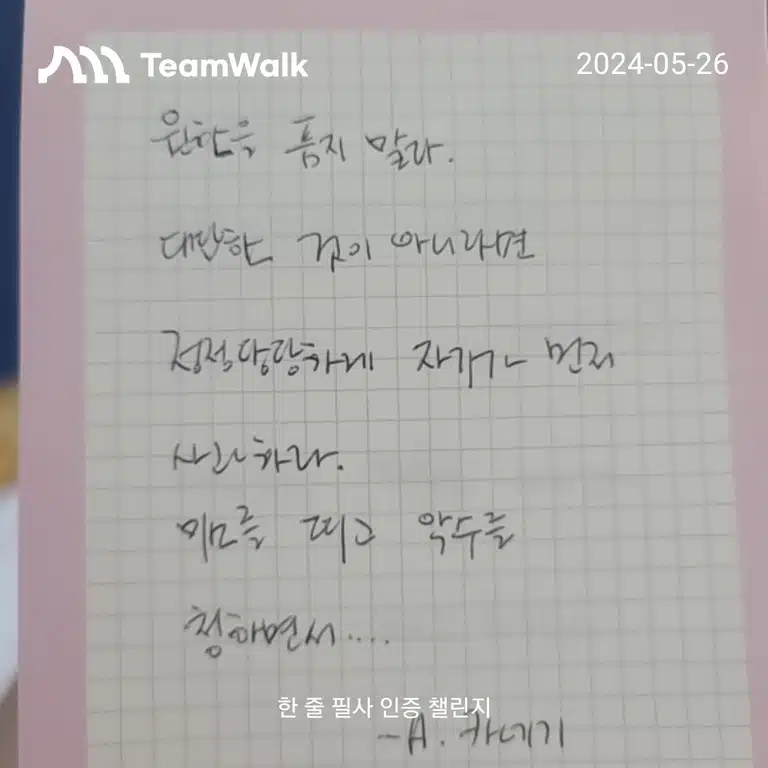 TeamWalk
2024-05-26
원한을 품지 말라.
대단한 것이 아니라면
정정당당하게 자기가 먼저
사과하라.
미소를 띠고 악수를
청하면서....
한 줄 필사 인증 챌린지
-A. 카네기